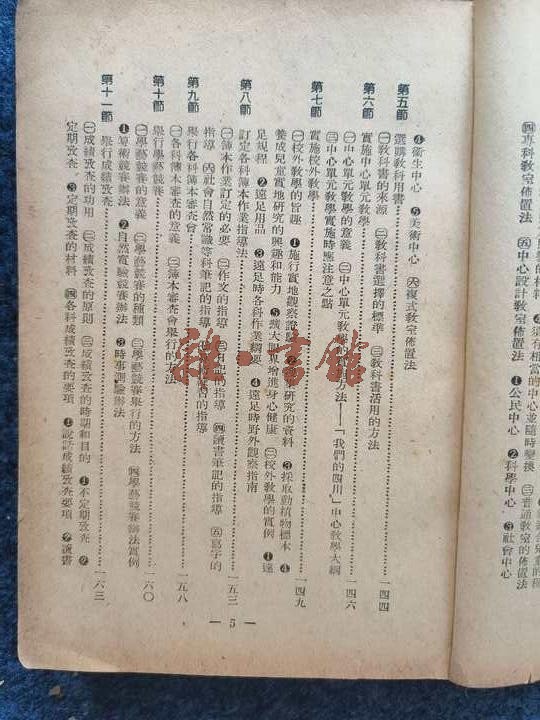 ㈣專科教室佈置法 ㈤中心設計教室佈置法 ❶公民中心 ❷科學中心 ❸社會中心
❹衛生中心 ❺美術中心 ㈥複式教室佈置法
第五節 選購教科用書 一四四
㈠教科書的來源 ㈡教科書選擇的標準 ㈢教科書活用的方法
第六節 實施中心單元教學 一四六
㈠中心單元教學的意義 ㈡中心單元教學 方法——「我們的四川」中心教學大綱
㈢中心單元教學實施時應注意之點
第七節 實施校外教學 一四九
㈠校外教學的旨趣 ❶施行實地觀察證驗 研究的資料 ❸採取動植物標本 ❹
養成兒童實地研究的興趣和能力 ❺ 增進身心健康 ㈡校外教學的實例 ❶遠
足規程 ❷遠足用品 ❸遠足時各科作業綱要 ❹遠足時野外觀察指南
第八節 訂定各科簿本作業指導法 一五三
㈠簿本作業訂定的必要 ㈡作文的指導 的指導 ㈣讀書筆記的指導 ㈤寫字的
指導 ㈥社會自然常識等科筆記的指導 的指導
第九節 舉行各科簿本審查會 一五八
㈠各科簿本審查的意義 ㈡簿本審查會舉行的方法
第十節 舉行學藝競賽 一六〇
㈠學藝競賽的意義 ㈡學藝競賽的種類 ㈢學藝競賽舉行的方法 ㈣學藝競賽辦法實例
❶算術競賽辦法 ❷自然實驗競賽辦法 ❸時事測驗辦法
第十一節 舉行成績攷查 一六三
㈠成績攷查的功用 ㈡成績攷查的原則 ㈢成績攷查的時期和目的 ❶不定期攷查 ❷
定期攷查 ❸定期攷查的材料 ㈣各科成績攷查的要項 ❶說話成績攷查要項 ❷讀書
— 5 —
雜·書館